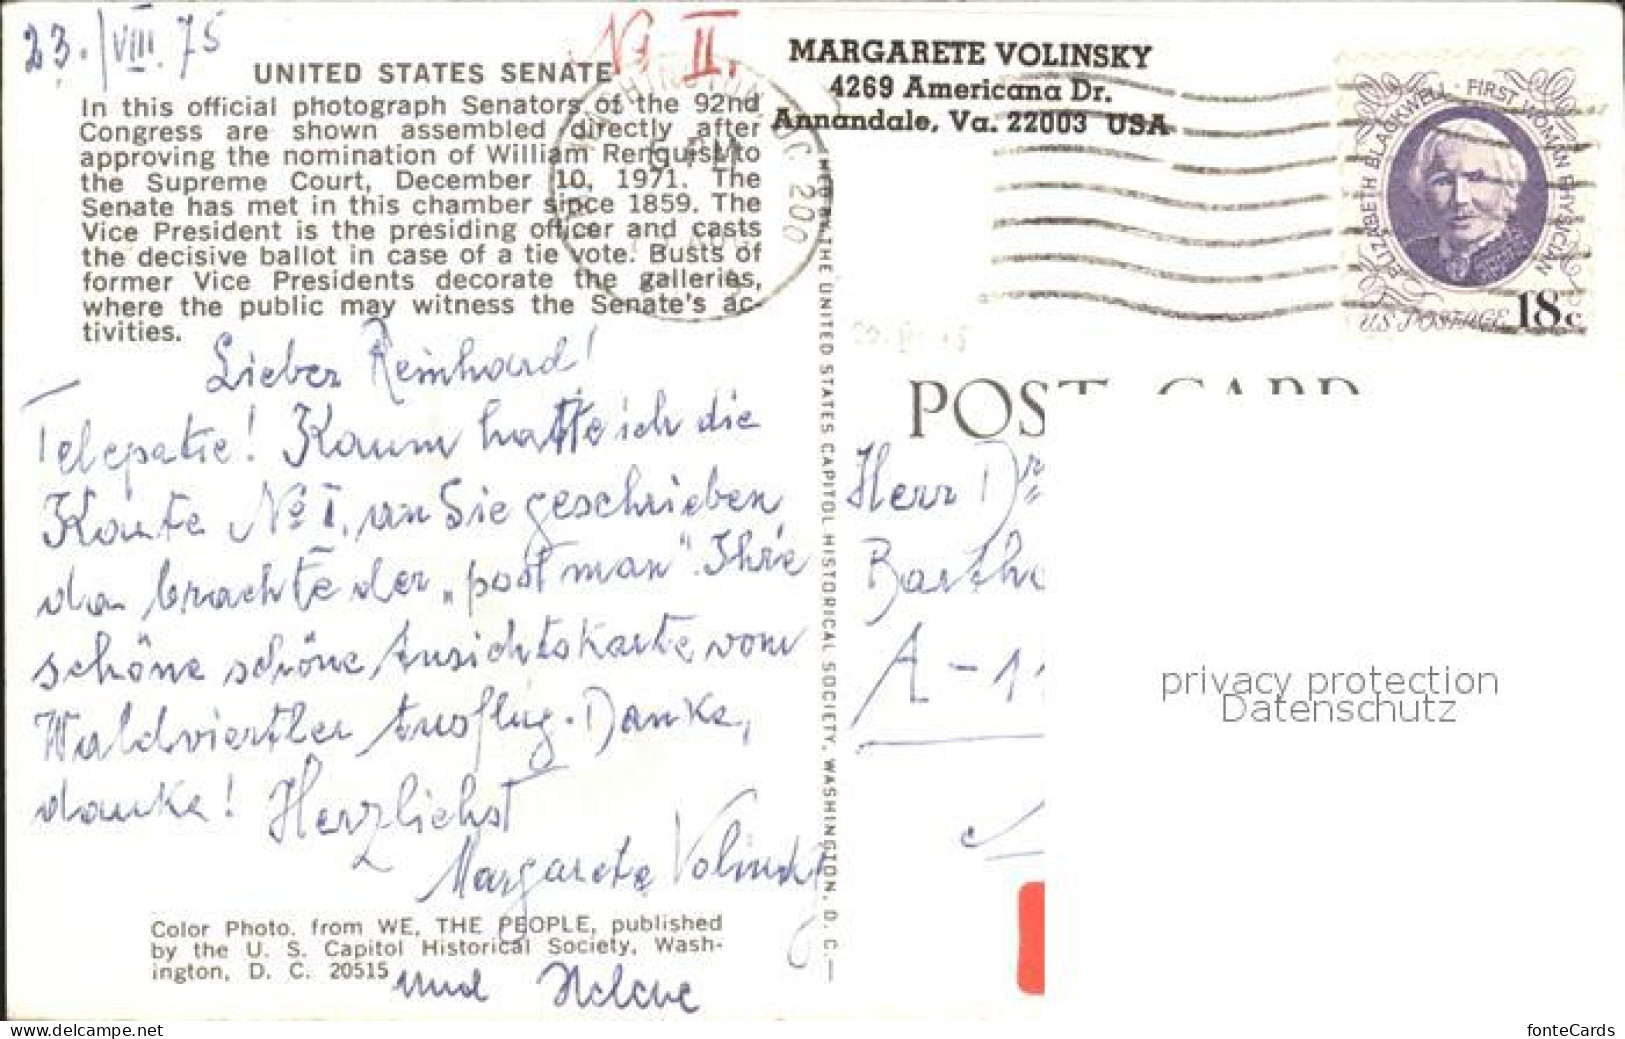 23./VIII.75
No II.
UNITED STATES SENATE
In this official photograph Senators of the 92nd
Congress are shown assembled directly after
approving the nomination of William Renquist to
the Supreme Court, December 10, 1971. The
Senate has met in this chamber since 1859. The
Vice President is the presiding officer and casts
the decisive ballot in case of a tie vote. Busts of
former Vice Presidents decorate the galleries,
where the public may witness the Senate's ac-
tivities.
Lieber Reinhard!
Telepatie! Kaum hatte ich die
Karte No I. an Sie geschrieben
da brachte der „postman". Ihre
schöne schöne Ansichtskarte vom
Waldviertler Ausflug. Danke,
danke! Herzlichst
Margarete Volinsky
Color Photo, from WE, THE PEOPLE, published
by the U. S. Capitol Historical Society, Wash-
ington, D. C. 20515
und Helene
THE UNITED STATES CAPITOL HISTORICAL SOCIETY, WASHINGTON, D. C.—
MARGARETE VOLINSKY
4269 Americana Dr.
Annandale, Va. 22003 USA
D.C. 200
ELIZABETH BLACKWELL - FIRST WOMAN PHYSICIAN
US POSTAGE 18c
POST CARD
Herr Dr
Barth
A-11
privacy protection
Datenschutz
www.delcampe.net
fonteCards